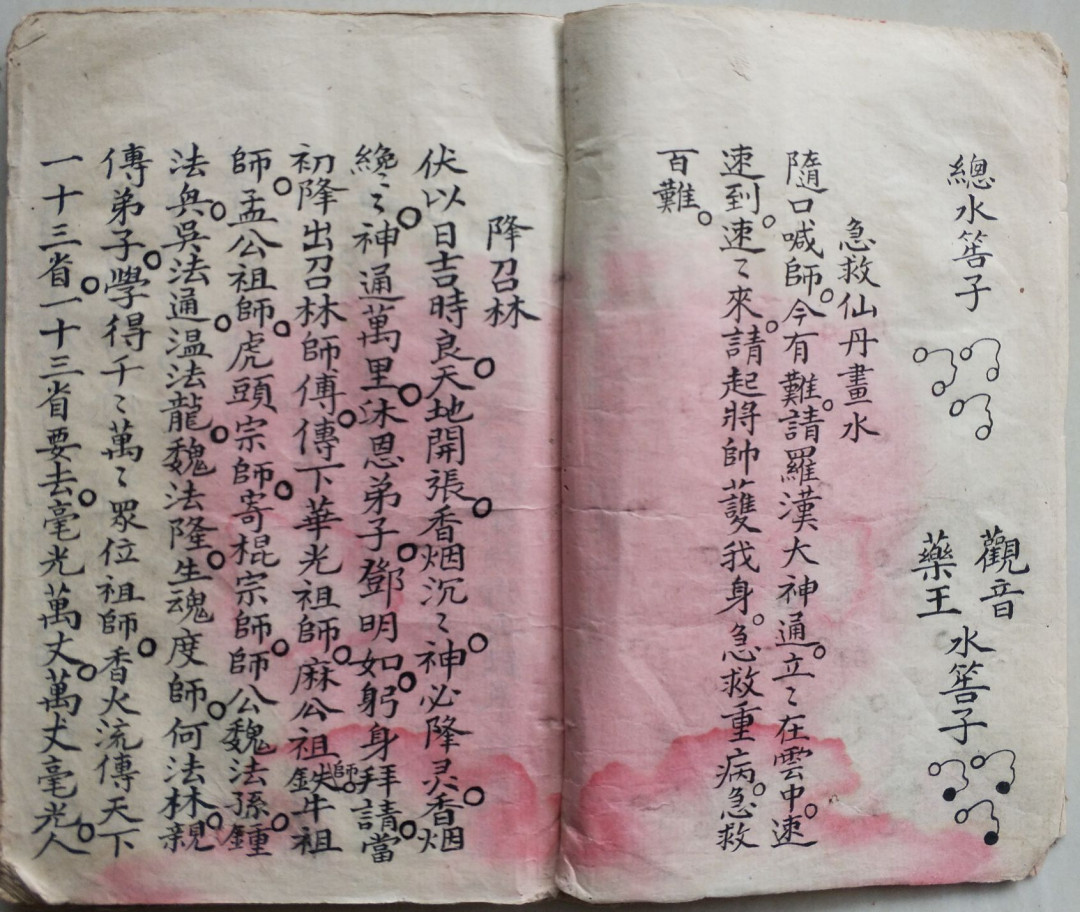 總水筶子
觀音
藥王
水筶子
急救仙丹畫水
隨口喊師。今有難。請羅漢大神通。立〻在雲中。速
速到。速〻來。請起將帥護我身。急救重病。急救
百難。
降召林
伏以日吉時良。天地開張。香烟沉〻。神必降灵。香烟
繞〻。神通萬里。沐恩弟子。鄧明如。躬身拜請。當
初降出召林師傅。傳下華光祖師。麻公祖師。鉄牛祖
師。孟公祖師。虎頭宗師。寄棍宗師。師公魏法孫。鍾
法兵。吳法通。温法龍。魏法隆。生魂度師。何法林。親
傳弟子。學得千〻萬〻眾位祖師。香火流傳天下
一十三省。一十三省要去。毫光萬丈。萬丈毫光人。